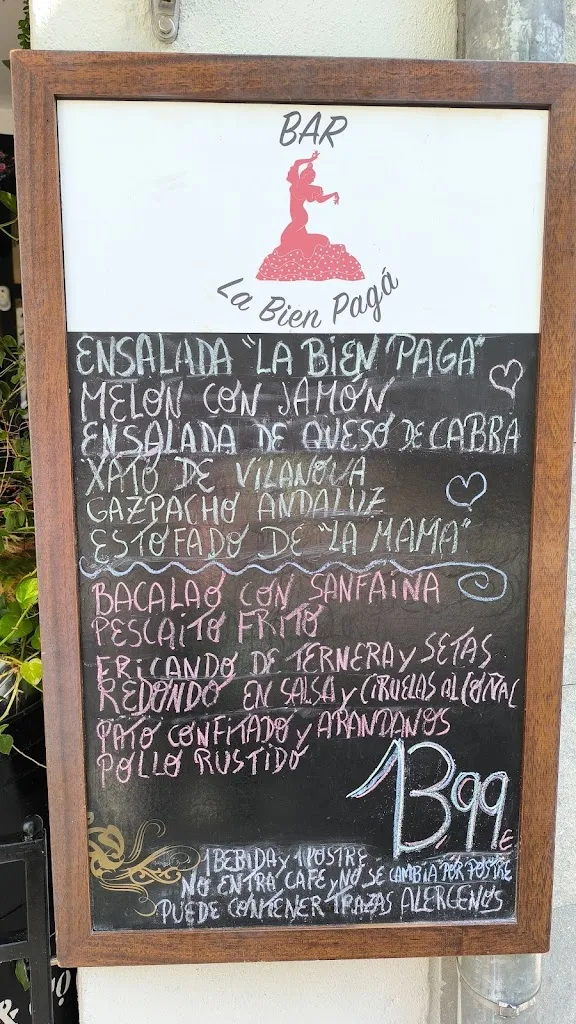 BAR
La Bien Pagá
ENSALADA "LA BIEN PAGA"
MELON CON JAMÓN
ENSALADA DE QUESO DE CABRA
XATO DE VILANOVA
GAZPACHO ANDALUZ
ESTOFADO DE "LA MAMA"
BACALAO CON SANFAINA
PESCAITO FRITO
FRICANDO DE TERNERA y SETAS
REDONDO EN SALSA y CIRUELAS AL COÑAC
PATO CONFITADO y ARANDANOS
POLLO RUSTIDO
13,99€
1 BEBIDA y 1 POSTRE
NO ENTRA CAFE y NO SE CAMBIA POR POSTRE
PUEDE CONTENER TRAZAS ALERGENOS